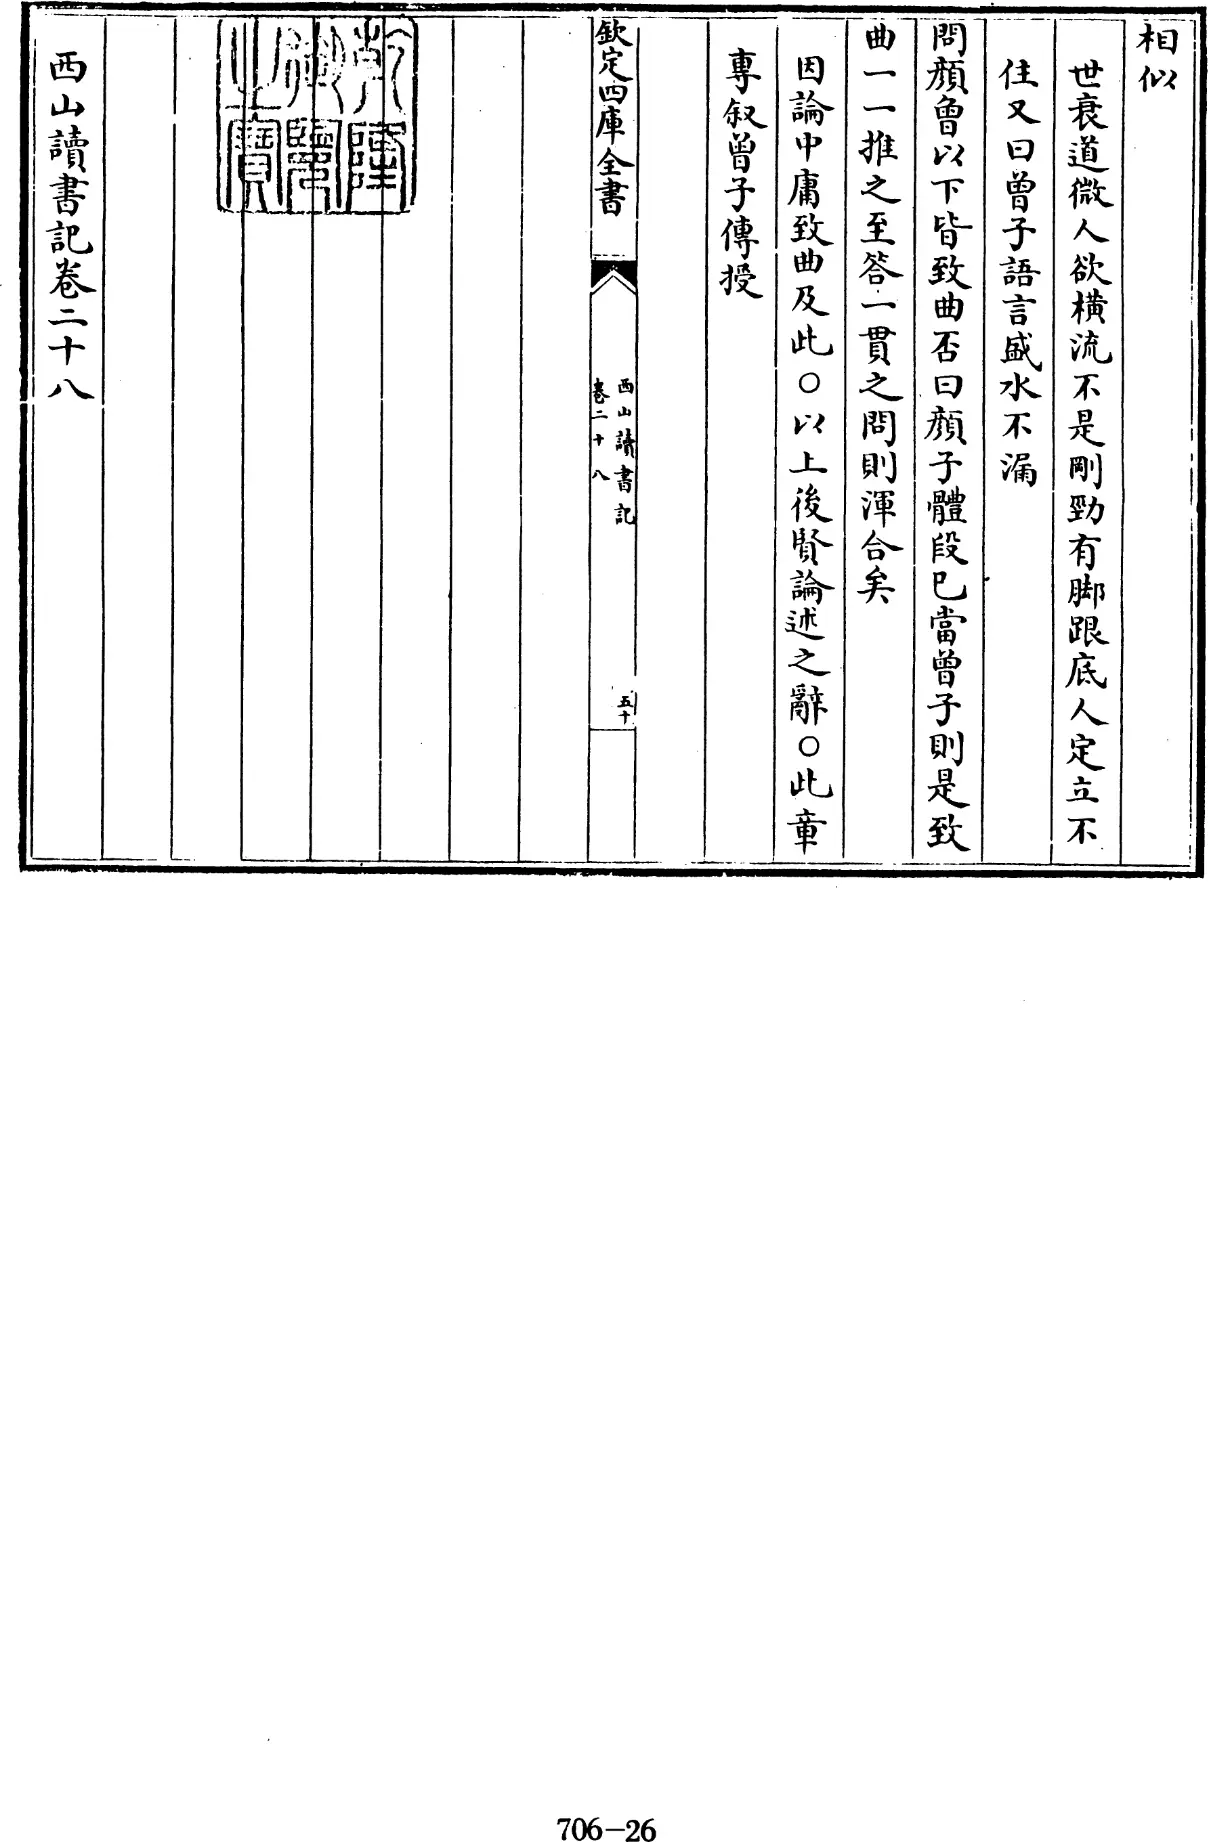 相似
世衰道微人欲橫流不是剛勁有脚跟底人定立不
住又曰曾子語言盛水不漏
問顏曾以下皆致曲否曰顏子體段已當曾子則是致
曲一一推之至答一貫之問則渾合矣
因論中庸致曲及此○以上後賢論述之辭○此章
專叙曾子傳授
欽定四庫全書
西山讀書記
卷二十八
五十
乾隆
御覽
之寶
西山讀書記卷二十八
706-26